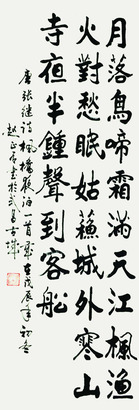 月落烏啼霜滿天江楓漁
火對愁眠姑蘇城外寒山
寺夜半鍾聲到客船
唐張繼詩楓橋夜泊一首 戊辰年初冬
書於武昌